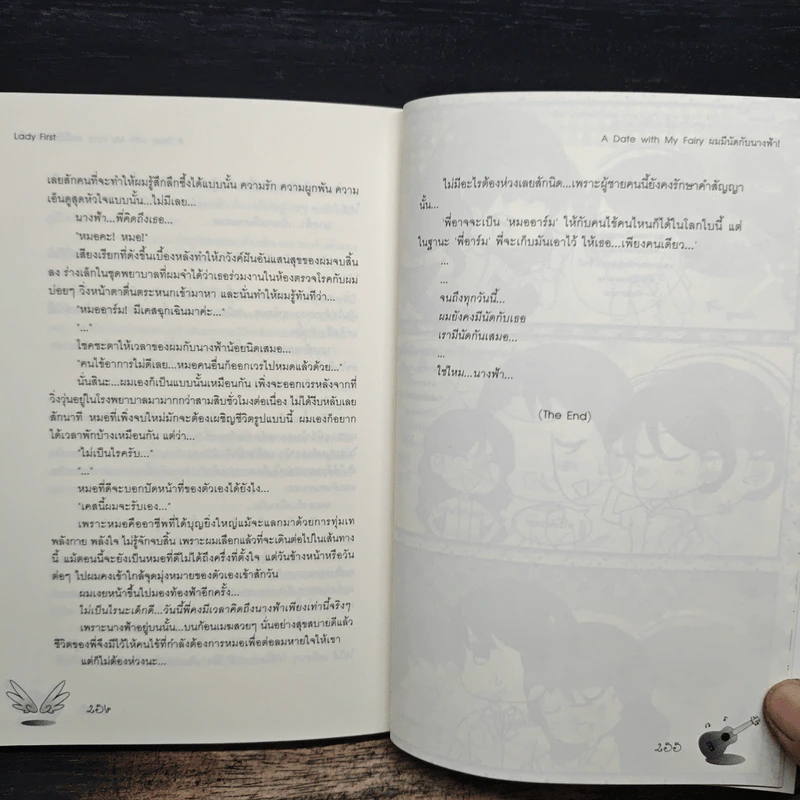 Lady First
เลยสักคนที่จะทำให้ผมรู้สึกลึกซึ้งได้แบบนั้น ความรัก ความผูกพัน ความ
เอ็นดูสุดหัวใจแบบนั้น...ไม่มีเลย...
นางฟ้า...พี่คิดถึงเธอ...
"หมอคะ! หมอ!"
เสียงเรียกที่ดังขึ้นเบื้องหลังทำให้ภวังค์ฝันอันแสนสุขของผมจบสิ้น
ลง ร่างเล็กในชุดพยาบาลที่ผมจำได้ว่าเธอร่วมงานในห้องตรวจโรคกับผม
บ่อยๆ วิ่งหน้าตาตื่นตระหนกเข้ามาหา และนั่นทำให้ผมรู้ทันทีว่า...
"หมออาร์ม! มีเคสฉุกเฉินมาค่ะ..."
"..."
โชคชะตาให้เวลาของผมกับนางฟ้าน้อยนิดเสมอ...
"คนไข้อาการไม่ดีเลย...หมอคนอื่นก็ออกเวรไปหมดแล้วด้วย..."
นั่นสินะ...ผมเองก็เป็นแบบนั้นเหมือนกัน เพิ่งจะออกเวรหลังจากที่
วิ่งวุ่นอยู่ในโรงพยาบาลมามากกว่าสามสิบชั่วโมงต่อเนื่อง ไม่ได้งีบหลับเลย
สักนาที หมอที่เพิ่งจบใหม่มักจะต้องเผชิญชีวิตรูปแบบนี้ ผมเองก็อยาก
ได้เวลาพักบ้างเหมือนกัน แต่ว่า...
"ไม่เป็นไรครับ..."
"..."
หมอที่ดีจะบอกปัดหน้าที่ของตัวเองได้ยังไง...
"เคสนี้ผมจะรับเอง..."
เพราะหมอคืออาชีพที่ได้บุญยิ่งใหญ่แม้จะแลกมาด้วยการทุ่มเท
พลังกาย พลังใจ ไม่รู้จักจบสิ้น เพราะผมเลือกแล้วที่จะเดินต่อไปในเส้นทาง
นี้ แม้ตอนนี้จะยังเป็นหมอที่ดีไม่ได้ถึงครึ่งที่ตั้งใจ แต่วันข้างหน้าหรือวัน
ต่อๆ ไปผมคงเข้าใกล้จุดมุ่งหมายของตัวเองเข้าสักวัน
ผมเงยหน้าขึ้นไปมองท้องฟ้าอีกครั้ง...
ไม่เป็นไรนะเด็กดี...วันนี้พี่คงมีเวลาคิดถึงนางฟ้าเพียงเท่านี้จริงๆ
เพราะนางฟ้าอยู่บนนั้น...บนก้อนเมฆสวยๆ นั่นอย่างสุขสบายดีแล้ว
ชีวิตของพี่จึงมีไว้ให้คนไข้ที่กำลังต้องการหมอเพื่อต่อลมหายใจให้เขา
แต่ก็ไม่ต้องห่วงนะ...
A Date with My Fairy ผมมีนัดกับนางฟ้า!
ไม่มีอะไรต้องห่วงเลยสักนิด...เพราะผู้ชายคนนี้ยังคงรักษาคำสัญญา
นั้น...
'พี่อาจจะเป็น 'หมออาร์ม' ให้กับคนไข้คนไหนก็ได้ในโลกใบนี้ แต่
ในฐานะ 'พี่อาร์ม' พี่จะเก็บมันเอาไว้ ให้เธอ...เพียงคนเดียว...'
...
...
จนถึงทุกวันนี้...
ผมยังคงมีนัดกับเธอ
เรามีนัดกันเสมอ...
...
ใช่ไหม...นางฟ้า...
(The End)